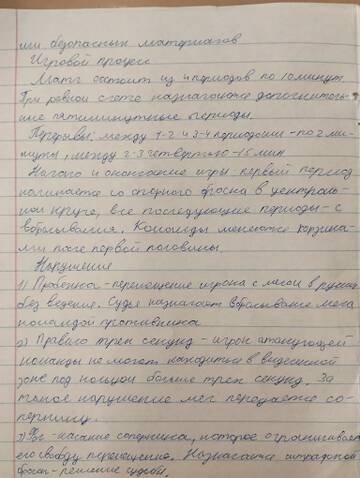 или безопасных материалов
Игровой процесс
Матч состоит из 4 периодов по 10 минут.
При равном счете назначаются дополнитель-
ные пятиминутные периоды.
Перерывы: между 1-2 и 3-4 периодами - по 2 ми-
нуты, между 2-3 четвертью - 15 мин
Начало и окончание игры первый период
начинается со спорного броска в централь-
ном круге, все последующие периоды - с
вбрасывания. Команды меняются корзина-
ми после первой половины.
Нарушения
1) Пробежка - перемещение игрока с мячом в руках
без ведения. Судья назначает вбрасывание мяча
командой противника
2) Правило трех секунд - игрок атакующей
команды не может находиться в
зоне под кольцом больше трех секунд. За
такое нарушение мяч передается со-
пернику.
3) Фол - касание соперника, которое ограничивает
его свободу перемещения. Назначается штрафной
бросок - решение судьи.